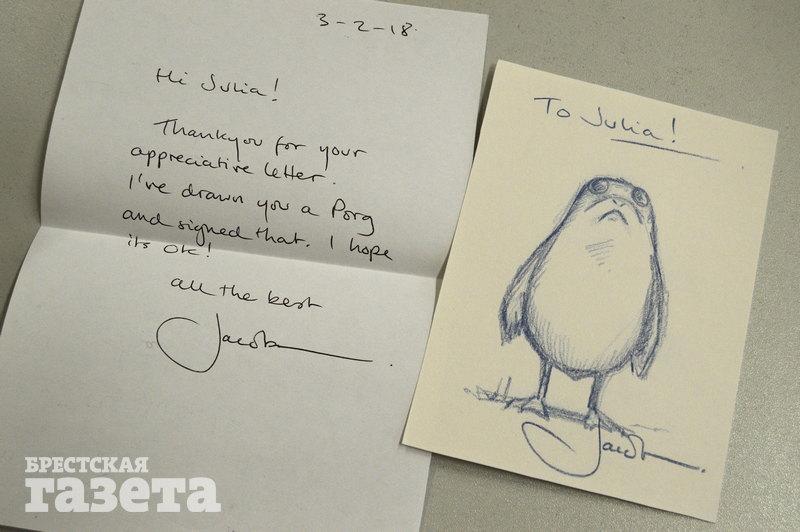 3-2-18.
Hi Julia!
Thankyou for your
appreciative letter.
I've drawn you a Porg
and signed that. I hope
its OK!
all the best
Jacob
To Julia!
Jacob
БРЕСТСКАЯ
газета